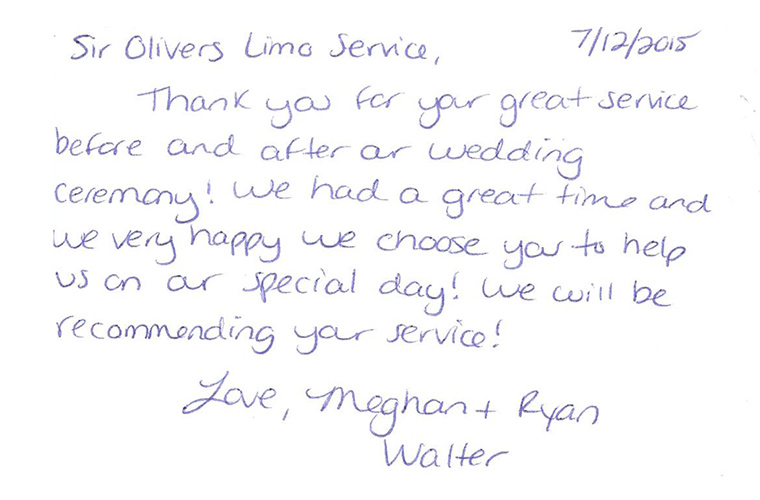 Sir Olivers Limo Service, 7/12/2015
Thank you for your great service
before and after our wedding
ceremony! We had a great time and
we very happy we choose you to help
us on our special day! We will be
recommending your service!
Love, Meghan + Ryan
Walter